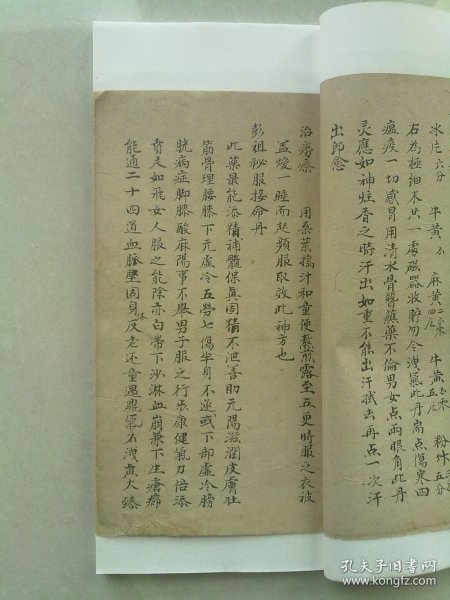 冰片六分 牛黄 麻黄四 牛黄五 粉艸五分
右為極細末共一處磁器收貯勿令洩氣此丹耑点傷寒四
瘟疫一切感冒用清水骨簪蘸藥不倫男女点兩眼角此丹
灵應如神炷香之時汗出如重不能出汗拭去再点一次汗
出即愈
治癆瘵 用桑葉搗汁和童便熬煎露至五更時服之衣被
盖煖一睡而起頻服取效此神方也
彭祖秘服接命丹
此藥最能添精補髓保真固精不泄善助元陽滋潤皮膚壮
筋骨理腰膝下元虚冷五勞七傷半身不遂或下部虚冷膀
胱病症脚膝酸麻陽事不舉男子服之行步康健氣力倍添
奔走如飛女人服之能除赤白帶下沙淋血崩兼下生瘡癤
能通二十四道血脉堅固身体反老还童遇鼎氣不洩真大臻
孔夫子旧书网
www.kongfz.com